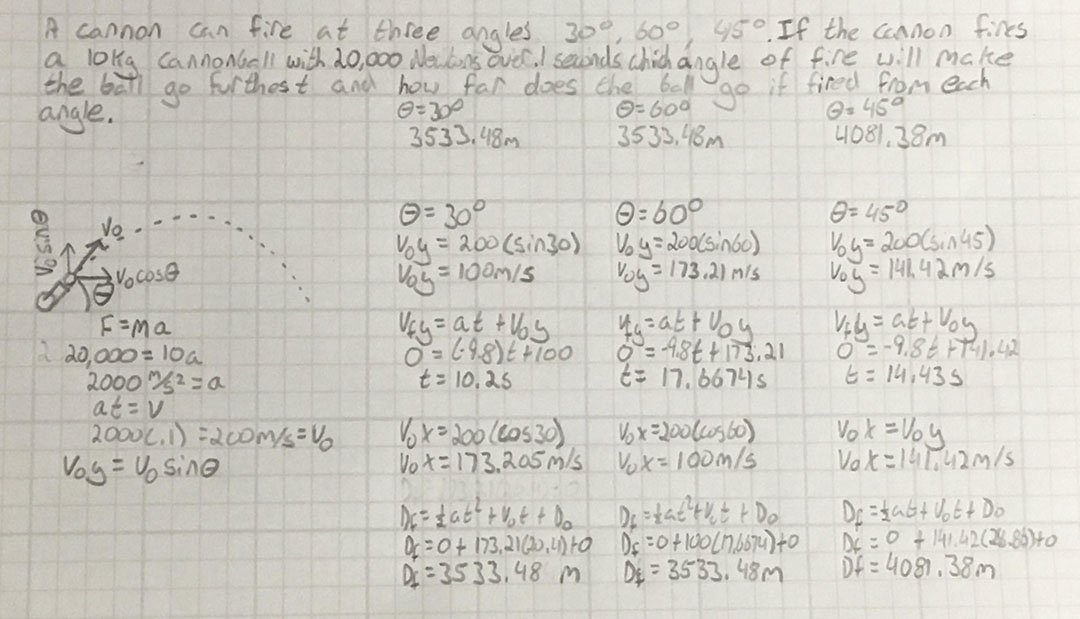 A cannon can fire at three angles 30°, 60°, 45°. If the cannon fires
a 10Kg cannonball with 20,000 Newtons over .1 seconds which angle of fire will make
the ball go furthest and how far does the ball go if fired from each
angle.
θ=30° θ=60° θ=45°
3533.48m 3533.48m 4081.38m
V₀sinθ
V₀
V₀cosθ
θ
F=ma
20,000=10a
2000 m/s²=a
at=V
2000(.1)=200m/s=V₀
V₀y=V₀sinθ
θ=30°
V₀y=200(sin30)
V₀y=100m/s
Vfy=at+V₀y
0=(-9.8)t+100
t=10.2s
V₀x=200(cos30)
V₀x=173.205m/s
Df=½at²+V₀t+D₀
Df=0+173.21(20.4)+0
Df=3533.48 m
θ=60°
V₀y=200(sin60)
V₀y=173.21m/s
Vfy=at+V₀y
0=-9.8t+173.21
t=17.6674s
V₀x=200(cos60)
V₀x=100m/s
Df=½at²+V₀t+D₀
Df=0+100(17.6674)+0
Df=3533.48m
θ=45°
V₀y=200(sin45)
V₀y=141.42m/s
Vfy=at+V₀y
0=-9.8t+141.42
t=14.43s
V₀x=V₀y
V₀x=141.42m/s
Df=½at+V₀t+D₀
Df=0+141.42(28.86)+0
Df=4081.38m